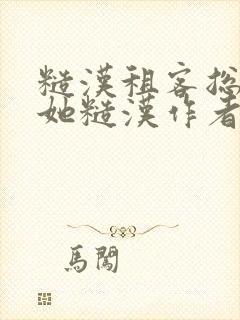 糙漢租客挖
她糙漢作者
馬闖